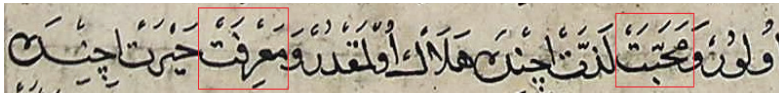 اُولُورْ وَمَحَبَّتْ لَذَّتْ اِچِنْدَه هَلَاكْ اُولْمَقْدُرْ وَمَعْرِفَتْ حَيْرَتْ اِچِنْدَه